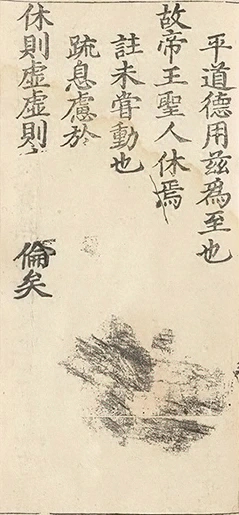 平道德用茲爲至也
故帝王聖人休焉
註未甞動也
疏息慮於
休則虛虛則 倫矣